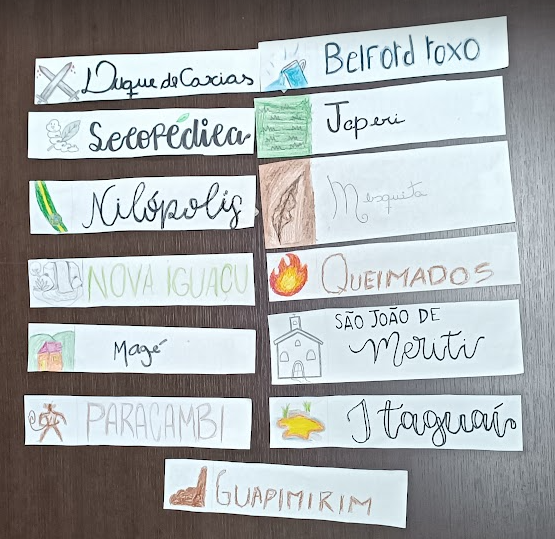 Duque de Caxias
Belford roxo
Seropédica
Japeri
Nilópolis
Mesquita
NOVA IGUAÇU
QUEIMADOS
Magé
SÃO JOÃO DE
Meriti
PARACAMBI
Itaguaí
GUAPIMIRIM